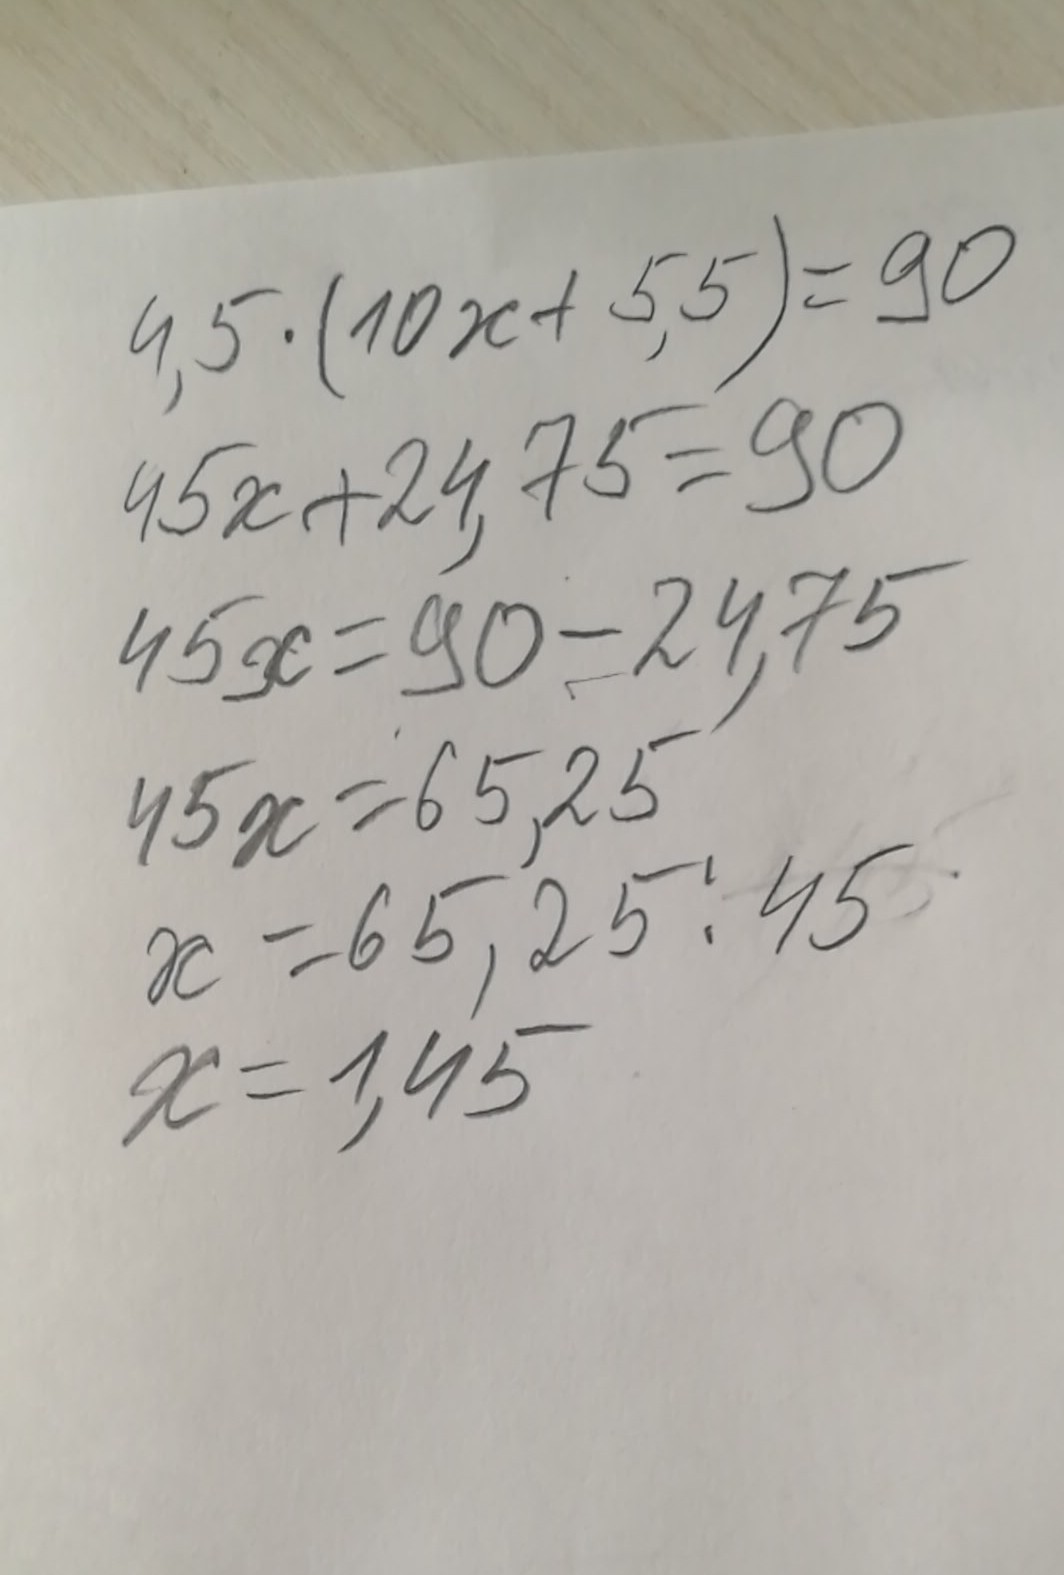 4,5·(10x+5,5)=90
45x+24,75=90
45x=90-24,75
45x=65,25
x=65,25:45
x=1,45